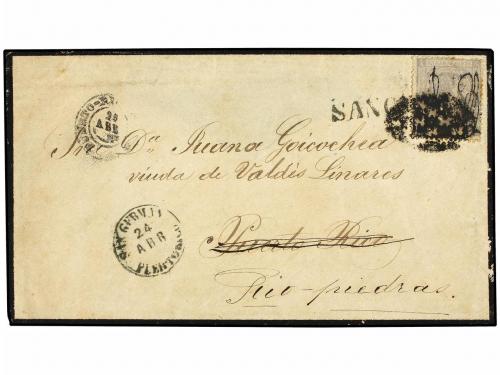 PUERTO-RICO
25
ABR
SANG
Sra. Dª. Juana Goicochea
viuda de Valdés Linares
SAN GERMAN
24
ABR
PUERTO-RICO
Puerto Rico
Rio-piedras.